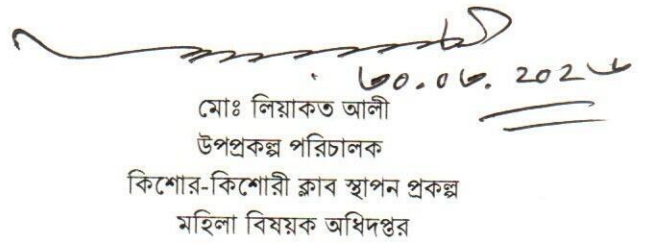 ৩০.০৬. 202৬
মোঃ লিয়াকত আলী
উপপ্রকল্প পরিচালক
কিশোর-কিশোরী ক্লাব স্থাপন প্রকল্প
মহিলা বিষয়ক অধিদপ্তর